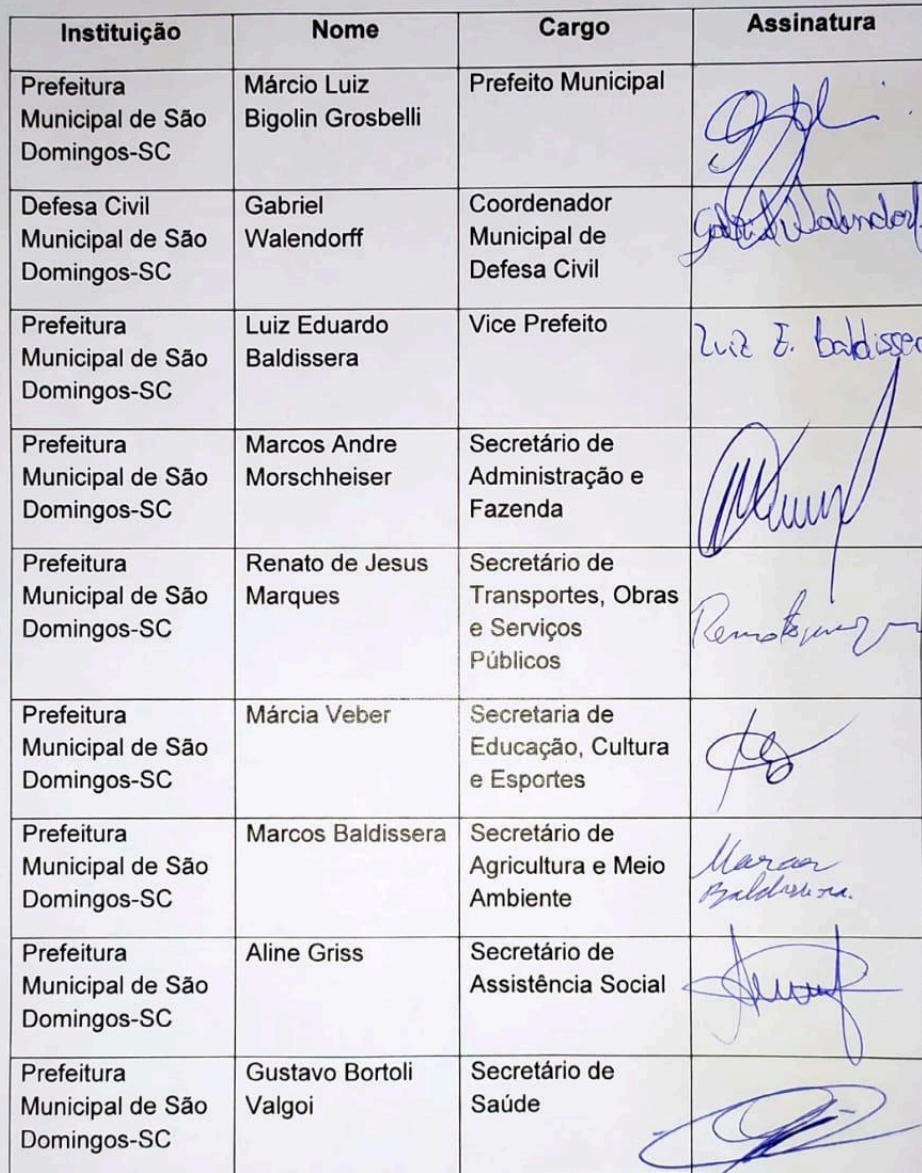 Instituição Nome Cargo Assinatura
Prefeitura Municipal de São Domingos-SC
Márcio Luiz Bigolin Grosbelli
Prefeito Municipal
Defesa Civil Municipal de São Domingos-SC
Gabriel Walendorff
Coordenador Municipal de Defesa Civil
Gabriel Walendorf
Prefeitura Municipal de São Domingos-SC
Luiz Eduardo Baldissera
Vice Prefeito
Luiz E. Baldisser
Prefeitura Municipal de São Domingos-SC
Marcos Andre Morschheiser
Secretário de Administração e Fazenda
Prefeitura Municipal de São Domingos-SC
Renato de Jesus Marques
Secretário de Transportes, Obras e Serviços Públicos
Prefeitura Municipal de São Domingos-SC
Márcia Veber
Secretaria de Educação, Cultura e Esportes
Prefeitura Municipal de São Domingos-SC
Marcos Baldissera
Secretário de Agricultura e Meio Ambiente
Marcos
Baldissera.
Prefeitura Municipal de São Domingos-SC
Aline Griss
Secretário de Assistência Social
Prefeitura Municipal de São Domingos-SC
Gustavo Bortoli Valgoi
Secretário de Saúde